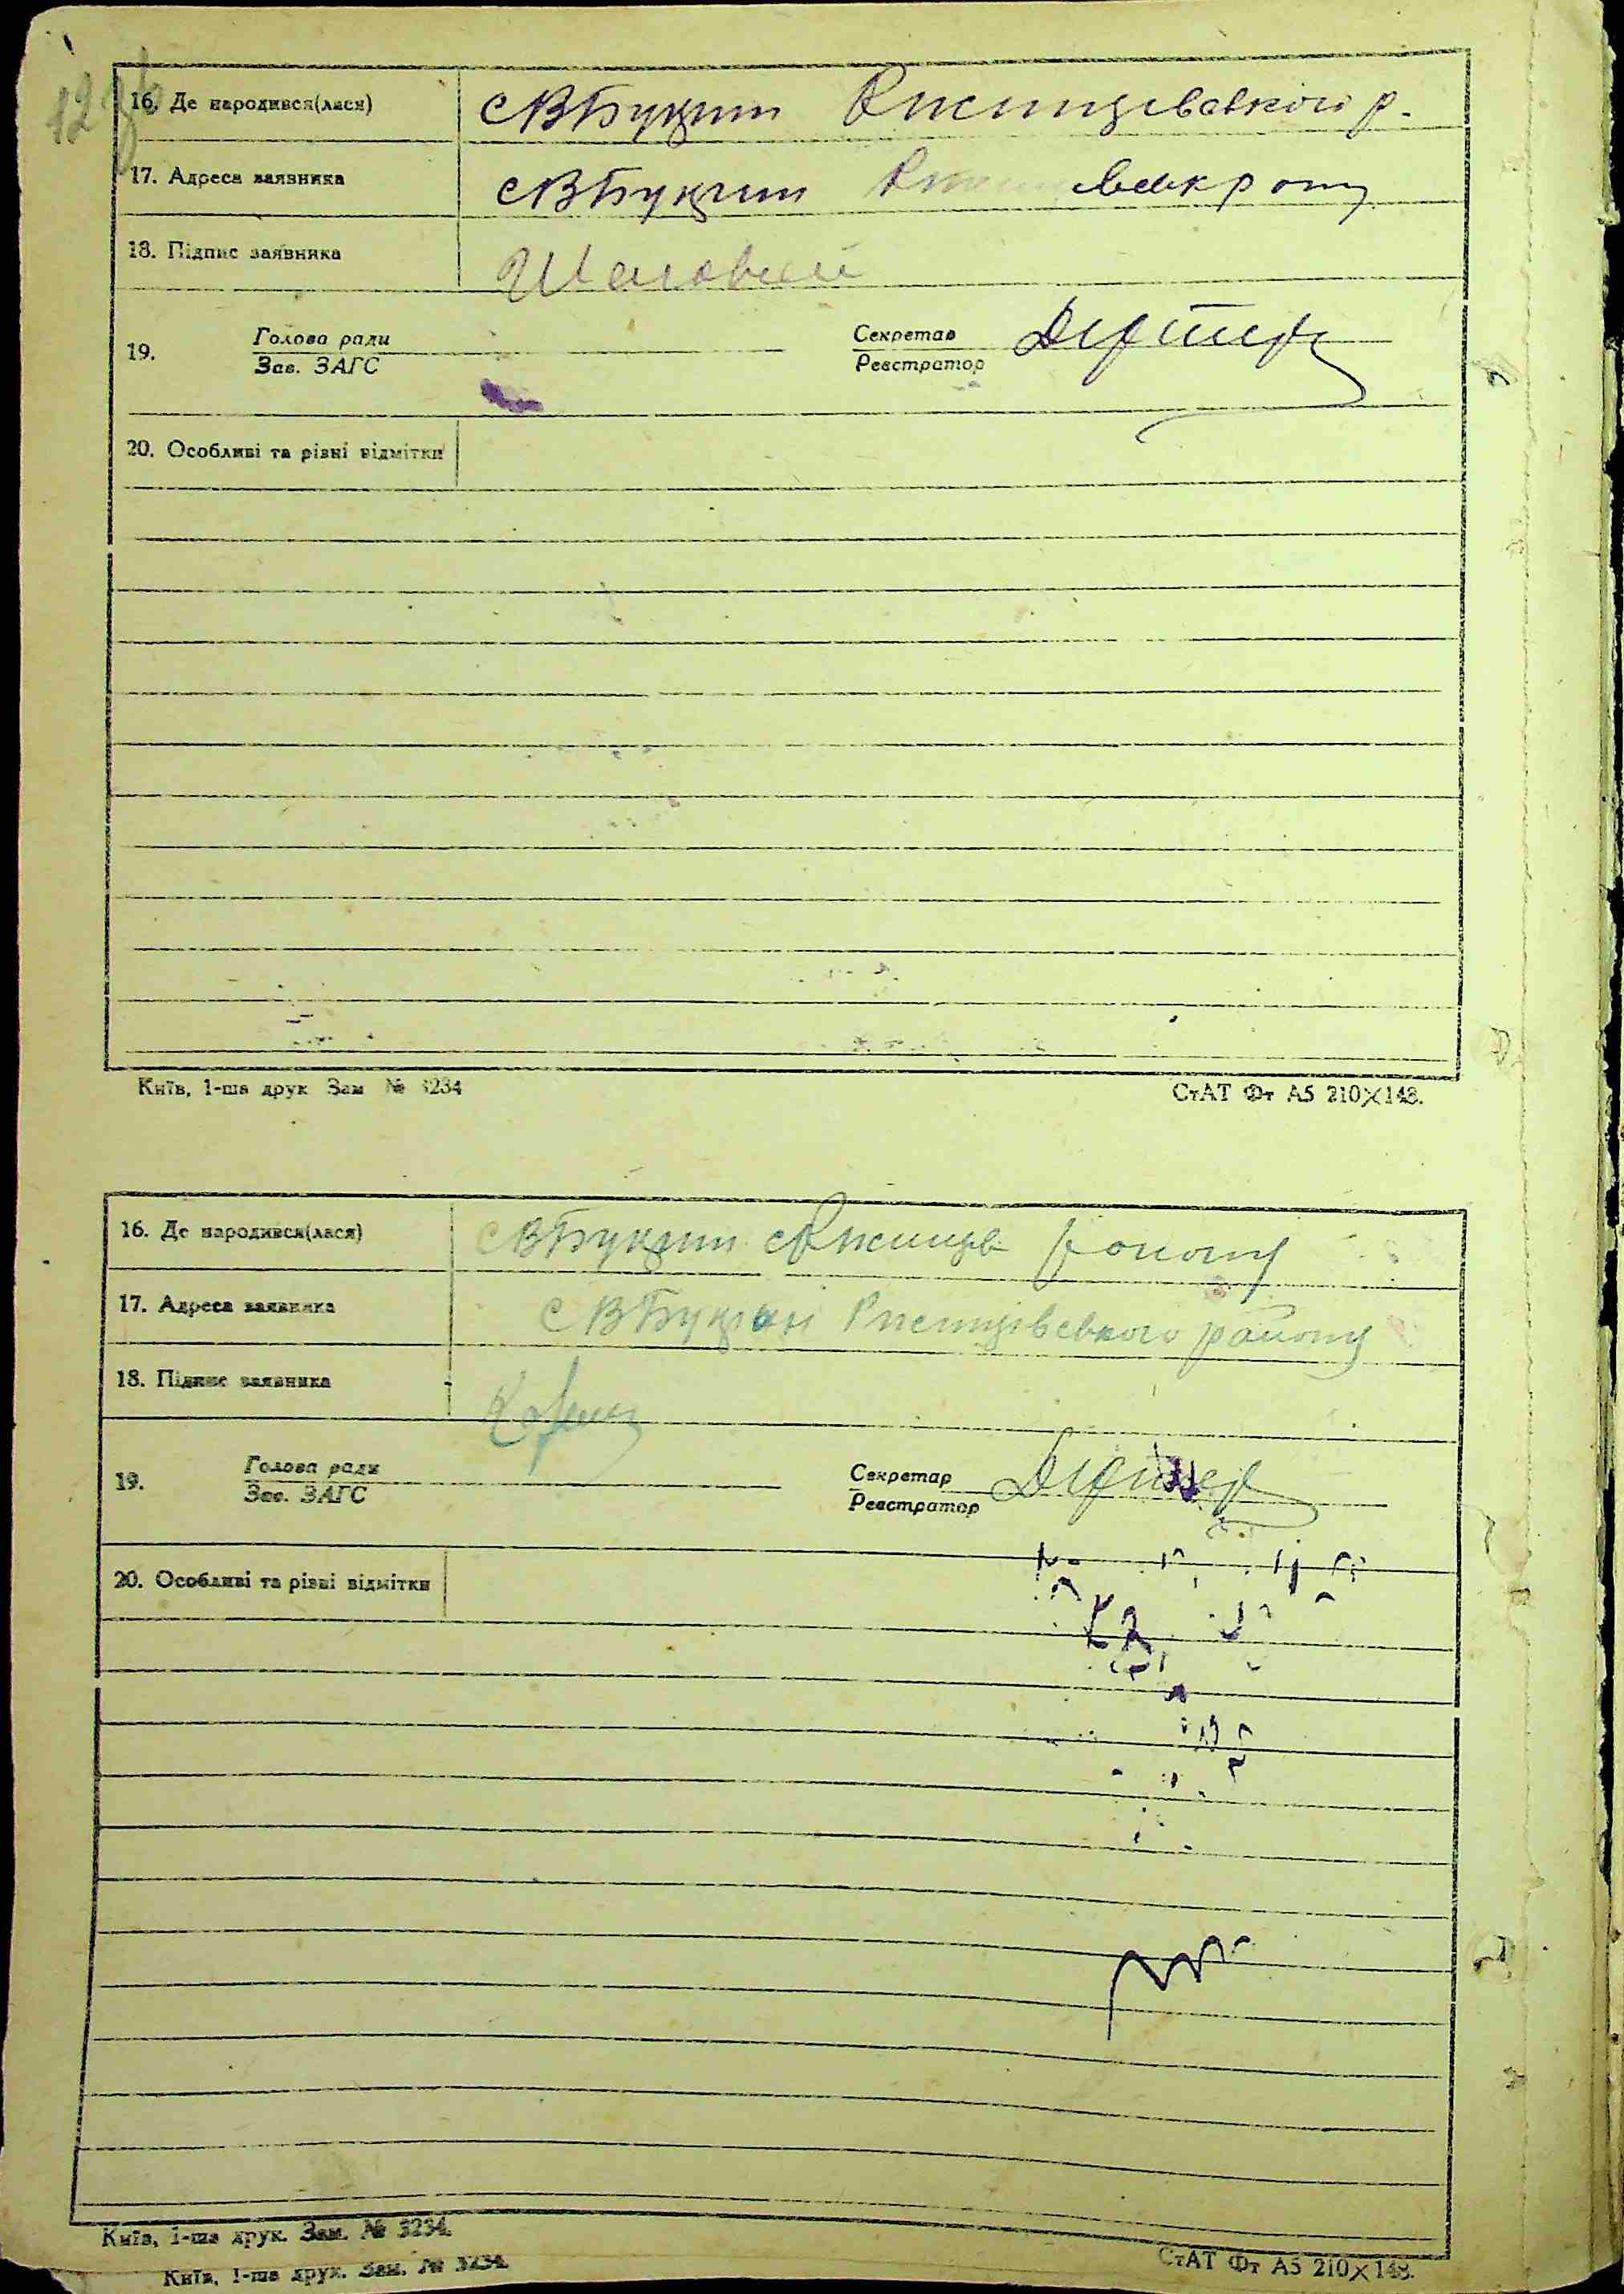 16. Де народився(лася) с В Букрин Ржищівського р.
17. Адреса заявника с В Букрин
18. Підпис заявника
19. Голова ради Секретар
Зав. ЗАГС Реєстратор
20. Особливі та різні відмітки
Київ, 1-ша друк Зам № 3234 СтАТ Фт А5 210×148.
16. Де народився(лася) с В Букрин Ржищів району
17. Адреса заявника с В Букрин Ржищівського району
18. Підпис заявника
19. Голова ради Секретар
Зав. ЗАГС Реєстратор
20. Особливі та різні відмітки
Київ, 1-ша друк. Зам. № 3234. СтАТ Фт А5 210×148.
Київ, 1-ша друк. Зам. № 3234.